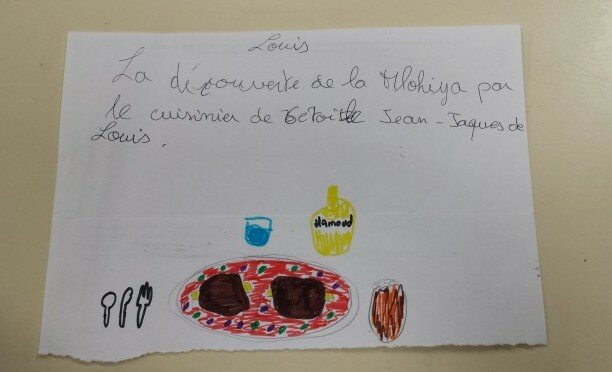 Louis
La découverte de la Mlohiya par
le cuisinier de Jean-Jaques de
Louis.
Hamood